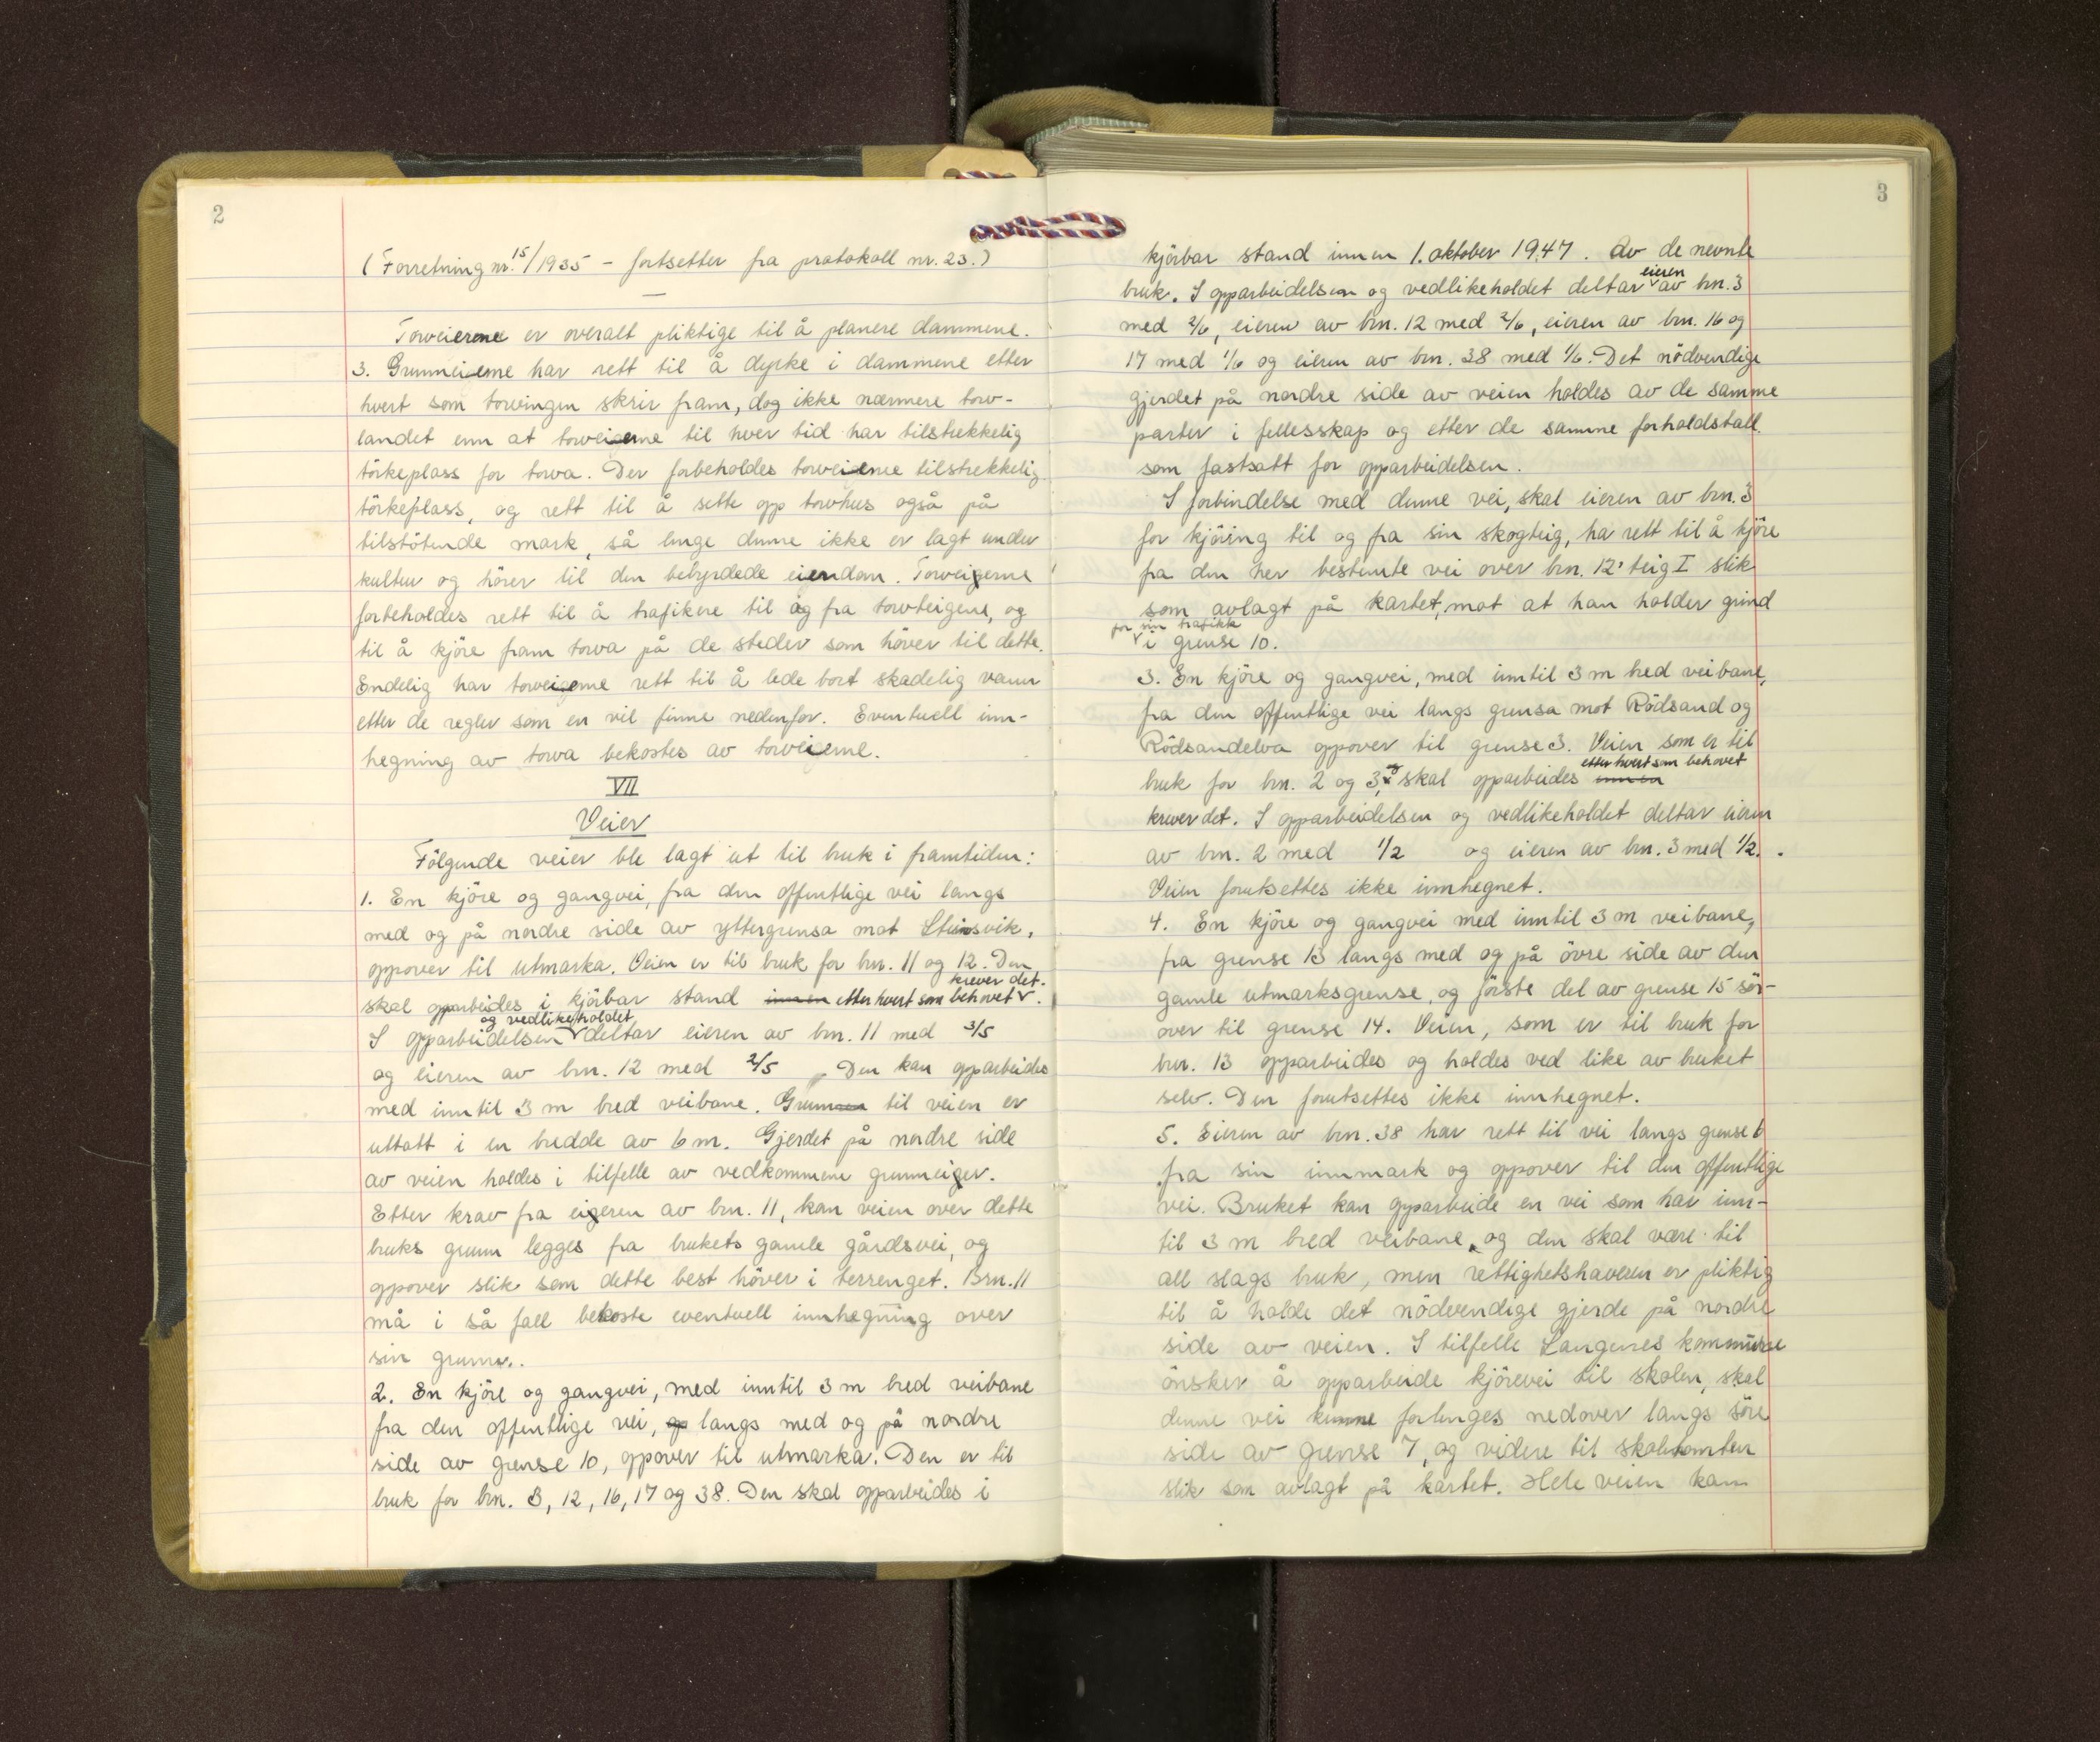 2
(Forretning nr. 15/1935 - fortsetter fra protokoll nr. 23.)
Torveierene er overalt pliktige til å planere dammene.
3. Grunneierne har rett til å dyrke i dammene etter
hvert som torvingen skrir fram, dog ikke nærmere torv-
landet enn at torveierne til hver tid har tilstrekkelig
törkeplass for torva. Der forbeholdes torveierne tilstrekkelig
törkeplass, og rett til å sette opp torvhus også på
tilstötende mark, så lenge denne ikke er lagt under
kultur og hörer til den betyrdede eiendom. Torveierne
forbeholdes rett til å trafikere til og fra torvteigene, og
til å kjöre fram torva på de steder som höver til dette.
Endelig har torveierne rett til å lede bort skadelig vann
etter de regler som en vil finne nedenfor. Eventuell inn-
hegning av torva bekostes av torveierne.
VII
Veier
Fölgende veier ble lagt ut til bruk i framtiden:
1. En kjöre og gangvei, fra den offentlige vei langs
med og på nordre side av yttergrensa mot Steinsvik,
oppover til utmarka. Veien er til bruk for brn. 11 og 12. Den
skal opparbeides i kjörbar stand innen etter hvert som behovet krever det.
I opparbeidelsen og vedlikeholdet deltar eieren av brn. 11 med 3/5
og eieren av brn. 12 med 2/5. Den kan opparbeides
med inntil 3 m bred veibane. Grunnen til veien er
uttatt i en bredde av 6 m. Gjerdet på nordre side
av veien holdes i tilfelle av vedkommene grunneier.
Etter krav fra eieren av brn. 11, kan veien over dette
bruks grunn legges fra brukets gamle gårdsvei, og
oppover slik som dette best höver i terrenget. Brn. 11
må i så fall bekoste eventuell innhegning over
sin grunn.
2. En kjöre og gangvei, med inntil 3 m bred veibane
fra den offentlige vei, op langs med og på nordre
side av grense 10, oppover til utmarka. Den er til
bruk for brn. 3, 12, 16, 17 og 38. Den skal opparbeides i
3
kjörbar stand innen 1. oktober 1947. Av de nevnte
bruk. I opparbeidelsen og vedlikeholdet deltar eieren av brn. 3
med 2/6, eieren av brn. 12 med 2/6, eieren av brn. 16 og
17 med 1/6 og eieren av brn. 38 med 1/6. Det nödvendige
gjerdet på nordre side av veien holdes av de samme
parter i fellesskap og etter de samme forholdstall
som fastsatt for opparbeidelsen.
I forbindelse med denne vei, skal eieren av brn. 3
for kjöring til og fra sin skogteig, ha rett til å kjöre
fra den her bestemte vei over brn. 12' teig I slik
som avlagt på kartet, mot at han holder grind
for sin trafikk i grense 10.
3. En kjöre og gangvei, med inntil 3 m bred veibane,
fra den offentlige vei langs grensa mot Rödsand og
Rödsandelva oppover til grense 3. Veien som er til
bruk for brn. 2 og 3, og skal opparbeides innen etter hvert som behovet
krever det. I opparbeidelsen og vedlikeholdet deltar eieren
av brn. 2 med 1/2 og eieren av brn. 3 med 1/2.
Veien forutsettes ikke innhegnet.
4. En kjöre og gangvei med inntil 3 m veibane,
fra grense 13 langs med og på övre side av den
gamle utmarksgrense, og förste del av grense 15 sör-
over til grense 14. Veien, som er til bruk for
brn. 13 opparbeides og holdes ved like av bruket
selv. Den forutsettes ikke innhegnet.
5. Eieren av brn. 38 har rett til vei langs grense 6
fra sin innmark og oppover til den offentlige
vei. Bruket kan opparbeide en vei som har inn-
til 3 m bred veibane, og den skal være til
all slags bruk, men rettighetshaveren er pliktig
til å holde det nödvendige gjerde på nordre
side av veien. I tilfelle Langenes kommune
önsker å opparbeide kjörevei til skolen, skal
denne vei kunne forlenges nedover langs söre
side av grense 7, og videre til skoletomten
slik som avlagt på kartet. Hele veien kan